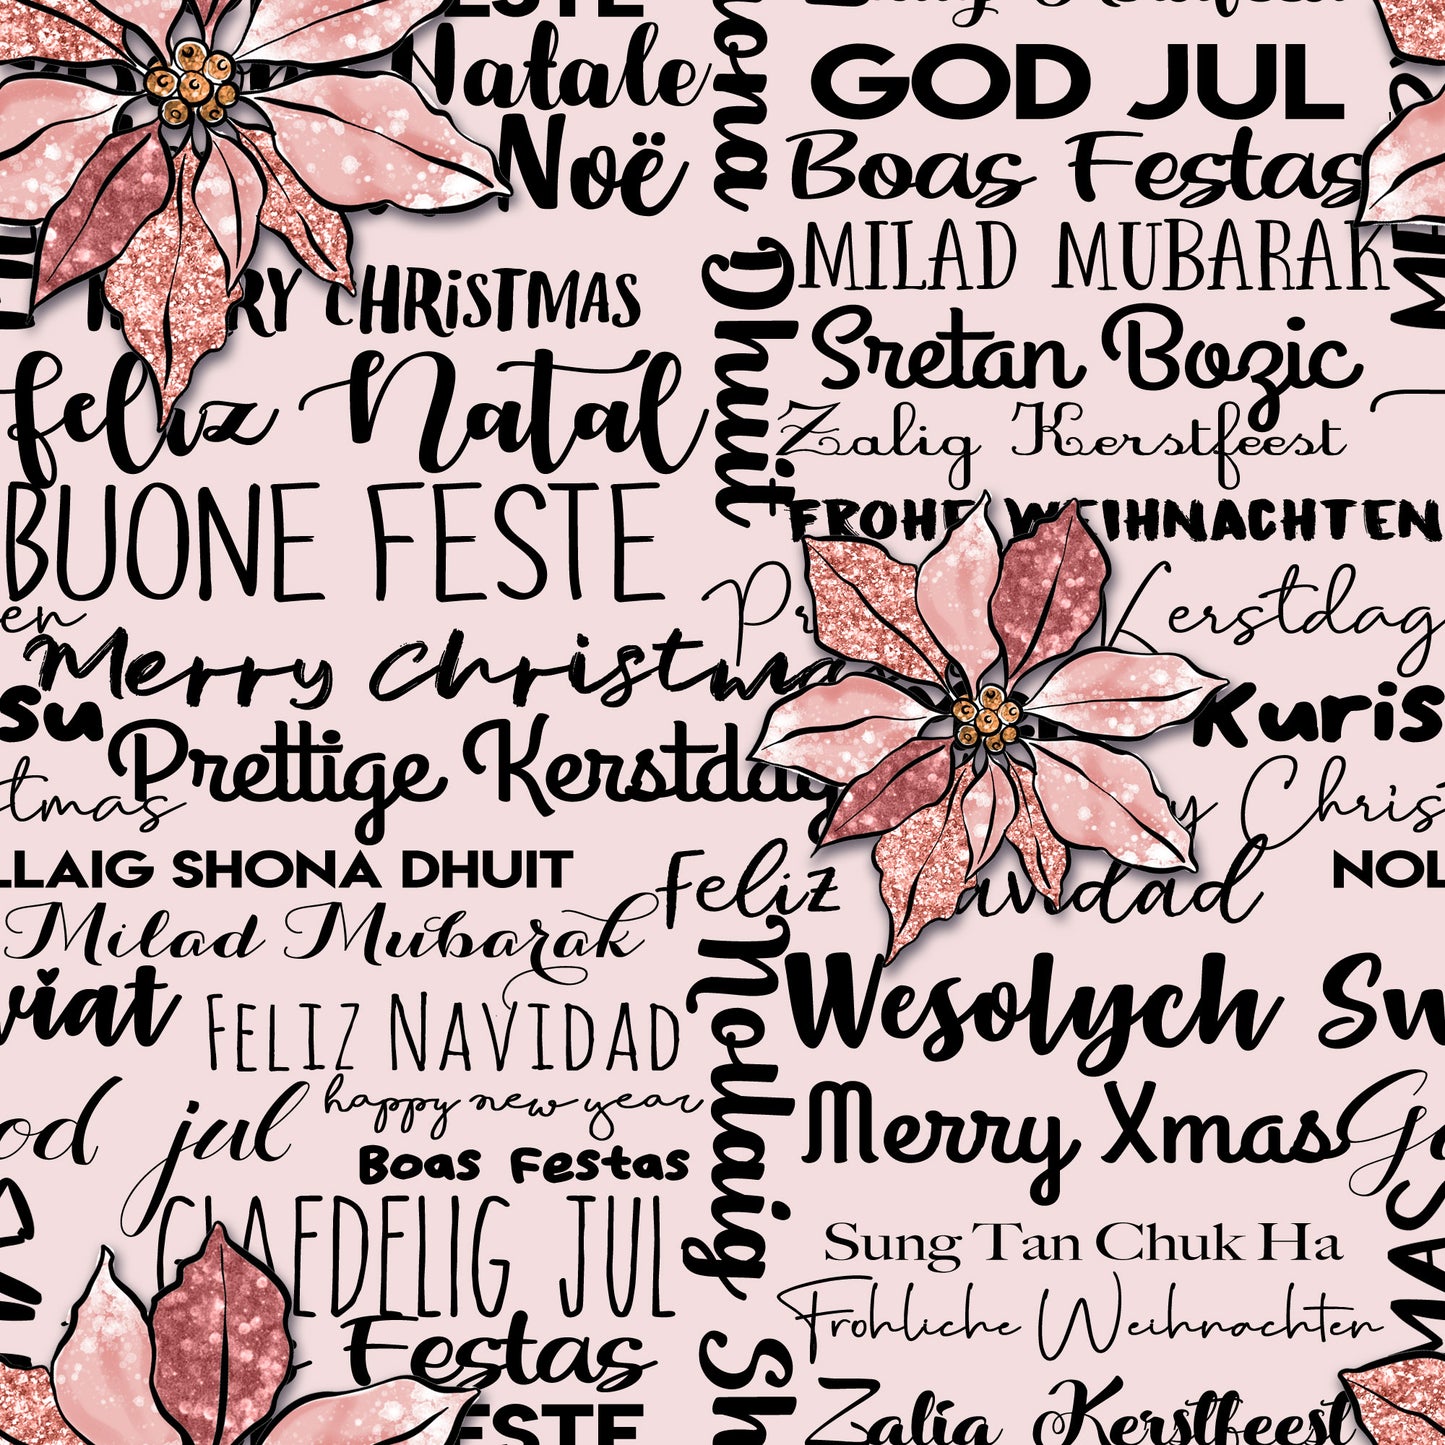 Natale
Noë
CHRiSTMAS
Feliz Natal
BUONE FESTE
en
Merry Christmas
su
Prettige Kerstdag
tmas
LLAIG SHONA DHUIT
Milad Mubarak
viat
FELIZ NAVIDAD
od jul
happy new year
Boas Festas
GLAEDELIG JUL
Festas
ESTE
hona Dhuit
Nollaig Sh
GOD JUL
Boas Festas
MILAD MUBARAK
Sretan Bozic
Zalig Kerstfeest
FROHE WEIHNACHTEN
Pr Kerstdag
Kuris
y Christ
Feliz Navidad
NOL
Wesolych Sw
Merry Xmas
Go
Sung Tan Chuk Ha
Frohliche Weihnachten
Zalig Kerstfeest
MAS
ME